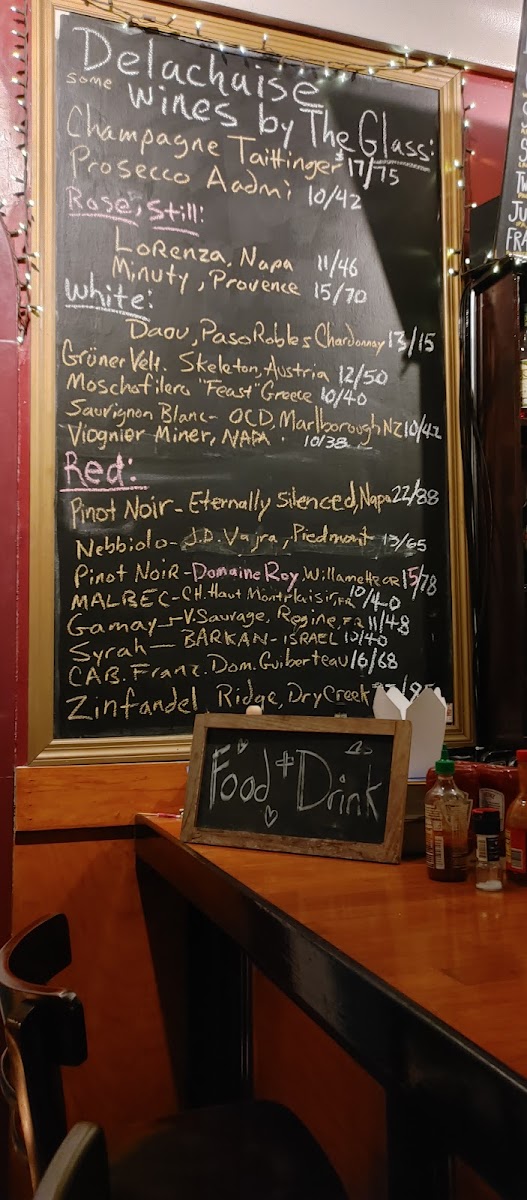 Delachaise
some wines by The Glass:
Champagne Taittinger $17/75
Prosecco Aadmi 10/42
Rose, Still:
Lorenza, Napa 11/46
Minuty, Provence 15/70
White:
Daou, Paso Robles Chardonnay 13/15
Grüner Velt. Skeleton, Austria 12/50
Moschofilero "Feast" Greece 10/40
Sauvignon Blanc- OCD, Marlborough, NZ 10/42
Viognier Miner, NAPA. 10/38
Red:
Pinot Noir- Eternally Silenced, Napa 22/88
Nebbiolo- J.D. Vajra, Piedmont 13/65
Pinot Noir- Domaine Roy, Willamette OR 15/78
MALBEC- CH. Haut Montplaisir, FR 10/40
Gamay- V. Sauvage, Regine, FR 11/48
Syrah- BARKAN- ISRAEL 10/40
CAB. Franc. Dom. Guiberteau 16/68
Zinfandel Ridge, Dry Creek
Food + Drink